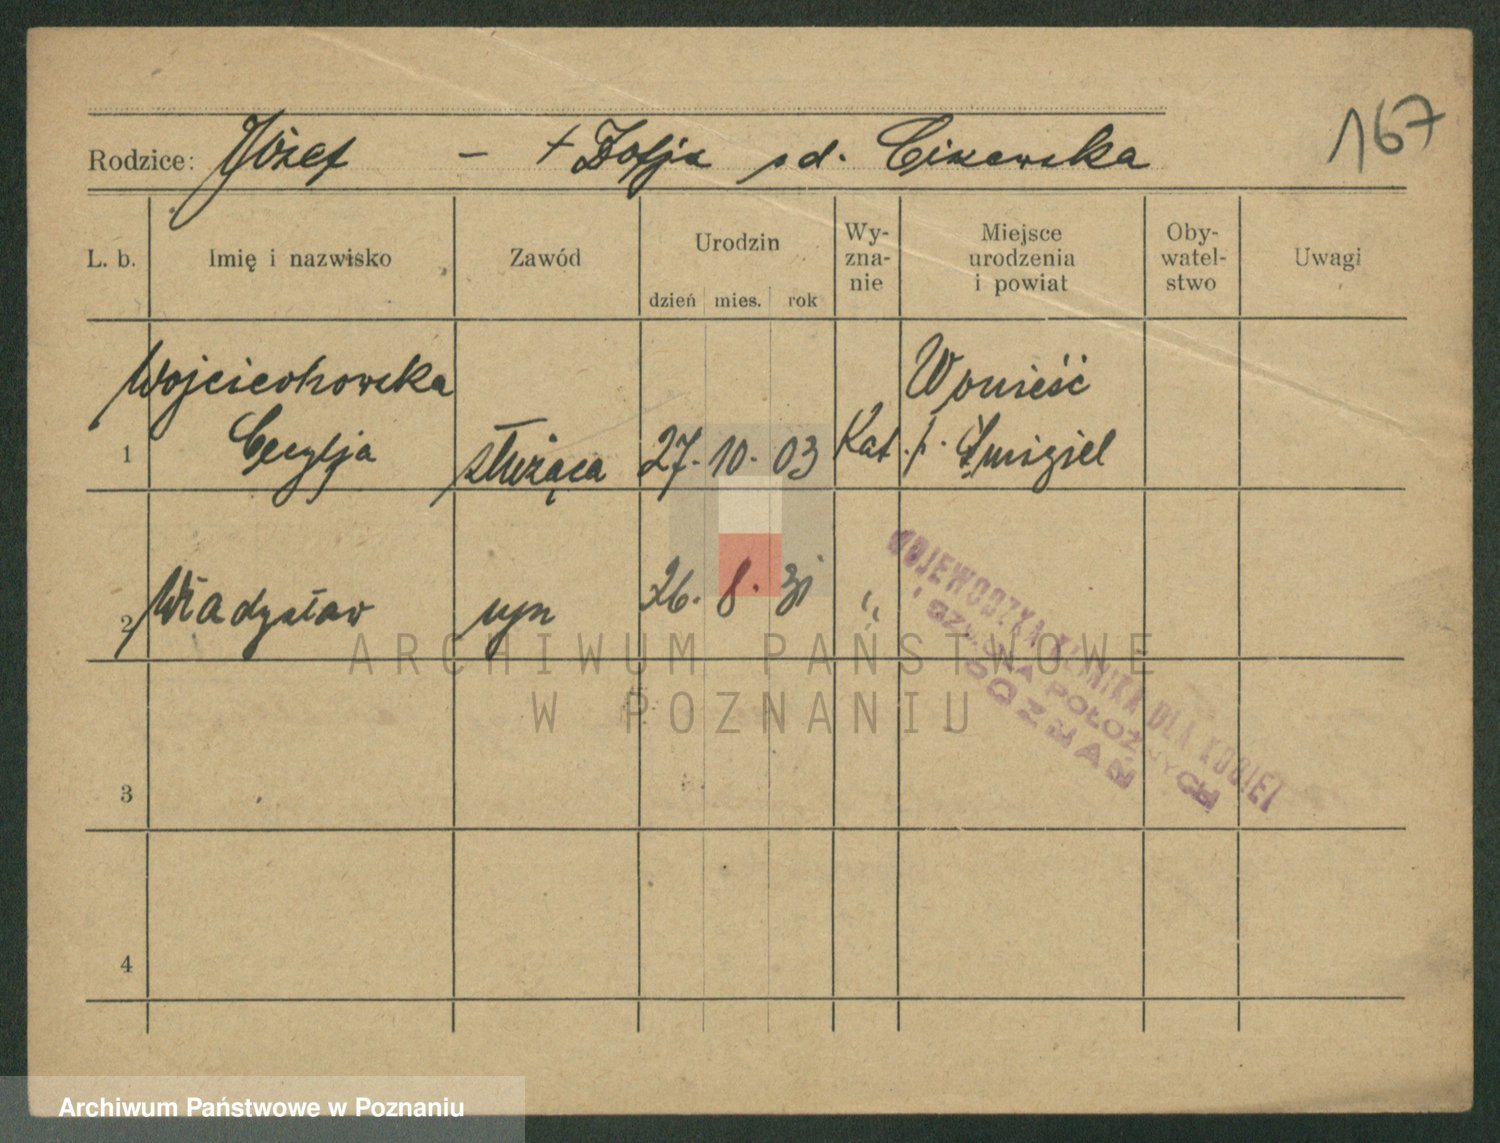 167
Rodzice: Józef – + Zofja sd. Ciszewska
L. b. Imię i nazwisko Zawód Urodzin dzień mies. rok Wy-zna-nie Miejsce urodzenia i powiat Oby-watel-stwo Uwagi
Wojciechowska Wonieść
1 Cecylja służąca 27. 10. 03 Kat. p. Śmigiel
2 Władysław syn 26. 8. 31 "
WOJEWÓDZKA KLINIKA DLA KOBIET
I SZKOŁA POŁOŻNYCH
POZNAŃ
ARCHIWUM PAŃSTWOWE
W POZNANIU
3
4
Archiwum Państwowe w Poznaniu